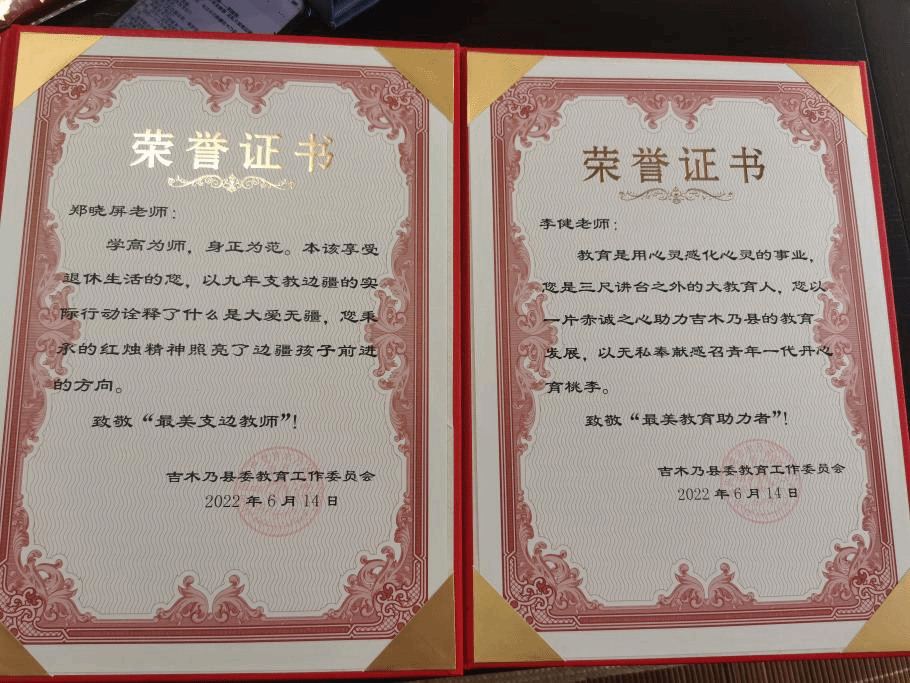 荣誉证书
郑晓屏老师：
学高为师，身正为范。本该享受
退休生活的您，以九年支教边疆的实
际行动诠释了什么是大爱无疆，您秉
承的红烛精神照亮了边疆孩子前进
的方向。
致敬“最美支边教师”！
吉木乃县委教育工作委员会
2022年6月14日
荣誉证书
李健老师：
教育是用心灵感化心灵的事业，
您是三尺讲台之外的大教育人，您以
一片赤诚之心助力吉木乃县的教育
发展，以无私奉献感召青年一代丹心
育桃李。
致敬“最美教育助力者”！
吉木乃县委教育工作委员会
2022年6月14日